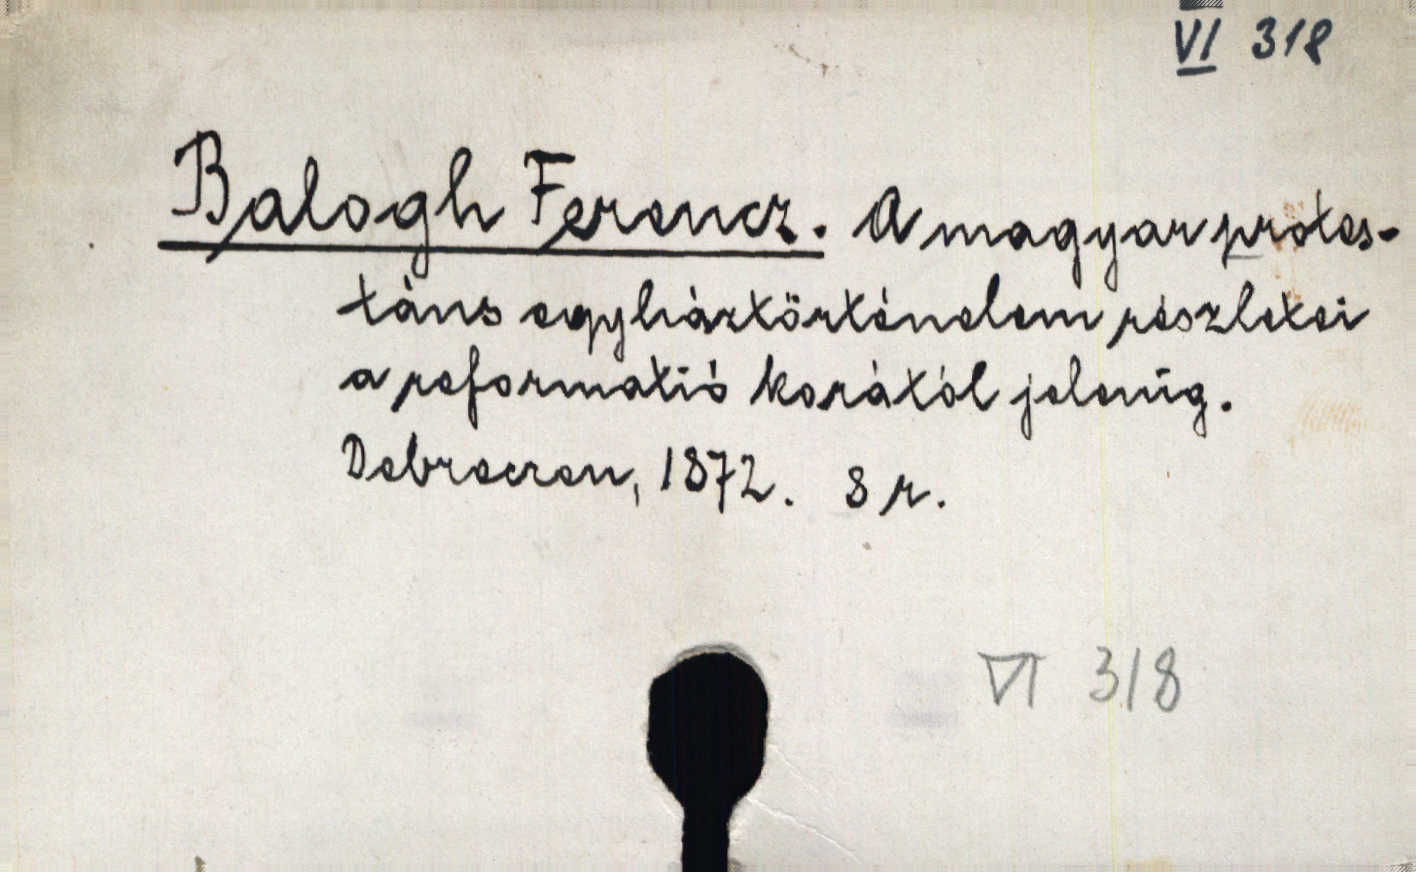 VI 318
Balogh Ferencz. A magyar protes-
táns egyháztörténelem részletei
a reformatió korától jelenig.
Debreczen, 1872. 8 r.
VI 318